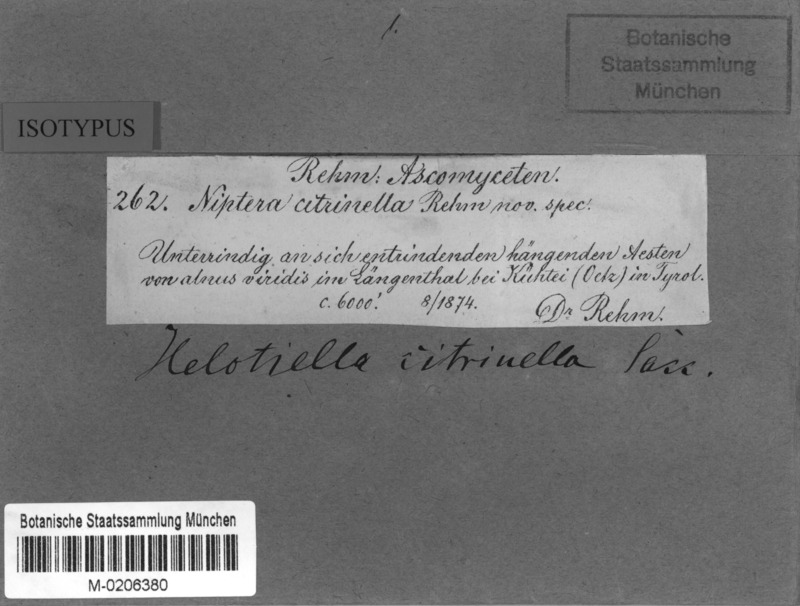 1.
Botanische
Staatssammlung
München
ISOTYPUS
Rehm: Ascomyceten.
262. Niptera citrinella Rehm nov. spec.
Unterrindig an sich entrindenden hängenden Aesten
von alnus viridis im Längenthal bei Kühtei (Oetz) in Tyrol.
c. 6000'. 8/1874.
Dr Rehm.
Helotiella citrinella Sacc.
Botanische Staatssammlung München
M-0206380